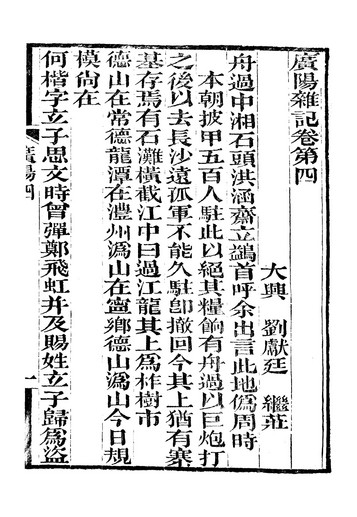 廣陽雜記卷第四
大興　劉獻廷　繼莊
舟過中湘石頭洪涵齋立鷁首呼余出言此地僞周時
本朝披甲五百人駐此以絕其糧餉有舟過以巨炮打
之後以去長沙遠孤軍不能久駐卽撤回今其上猶有寨
基存焉有石灘橫截江中曰過江龍其上爲柞樹市
德山在常德龍潭在澧州潙山在寧鄉德山潙山今日規
模尚在
何楷字立子思文時曾彈鄭飛虹并及賜姓立子歸爲盜
廣陽四
一